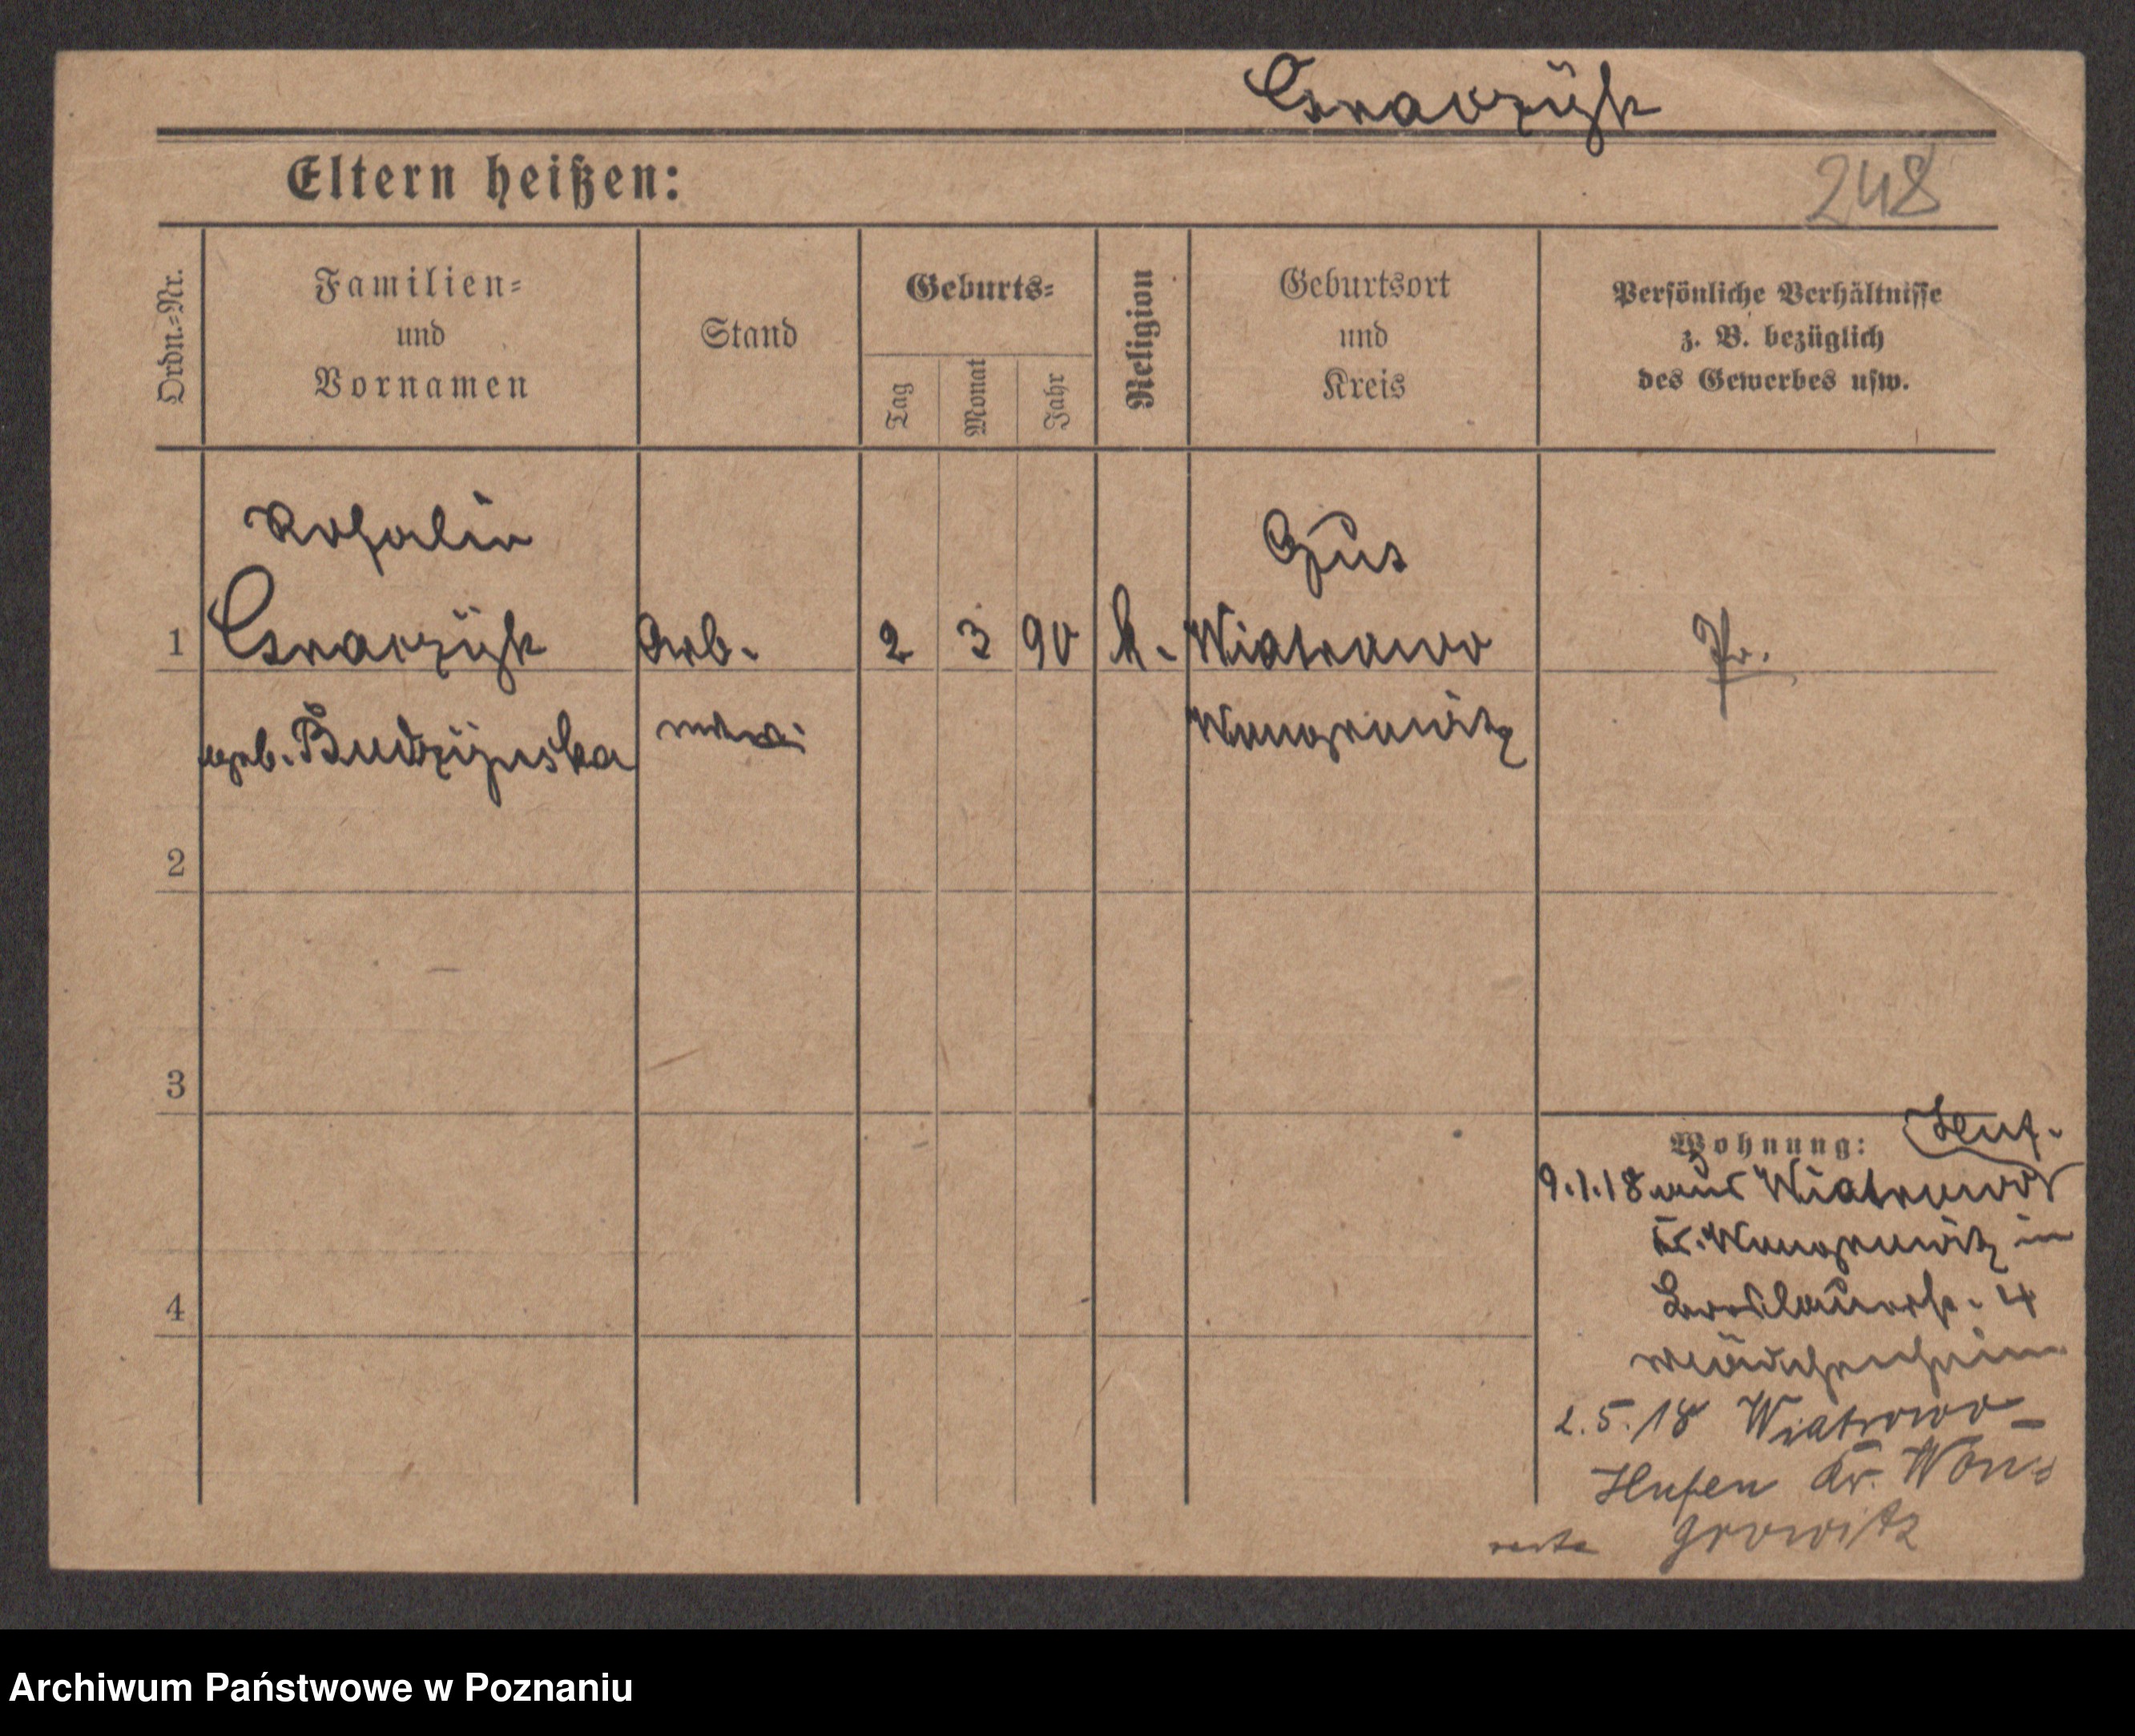 248
Eltern heißen:
Ordn.-Nr.
Familien-
und
Vornamen
Stand
Geburts-
Tag
Monat
Jahr
Religion
Geburtsort
und
Kreis
Persönliche Verhältnisse
z. B. bezüglich
des Gewerbes usw.
Gut
1 Arb. 2 3 90 k. Wiatrowo Pr.
geb. Budzijnska Wongrowitz
2
3
4
Wohnung: Huf.
9.1.18 aus Wiatrowo
Kr. Wongrowitz in
4
Mädchenheim
2.5.18 Wiatrowo-
Hufen Kr. Won-
growitz
Archiwum Państwowe w Poznaniu